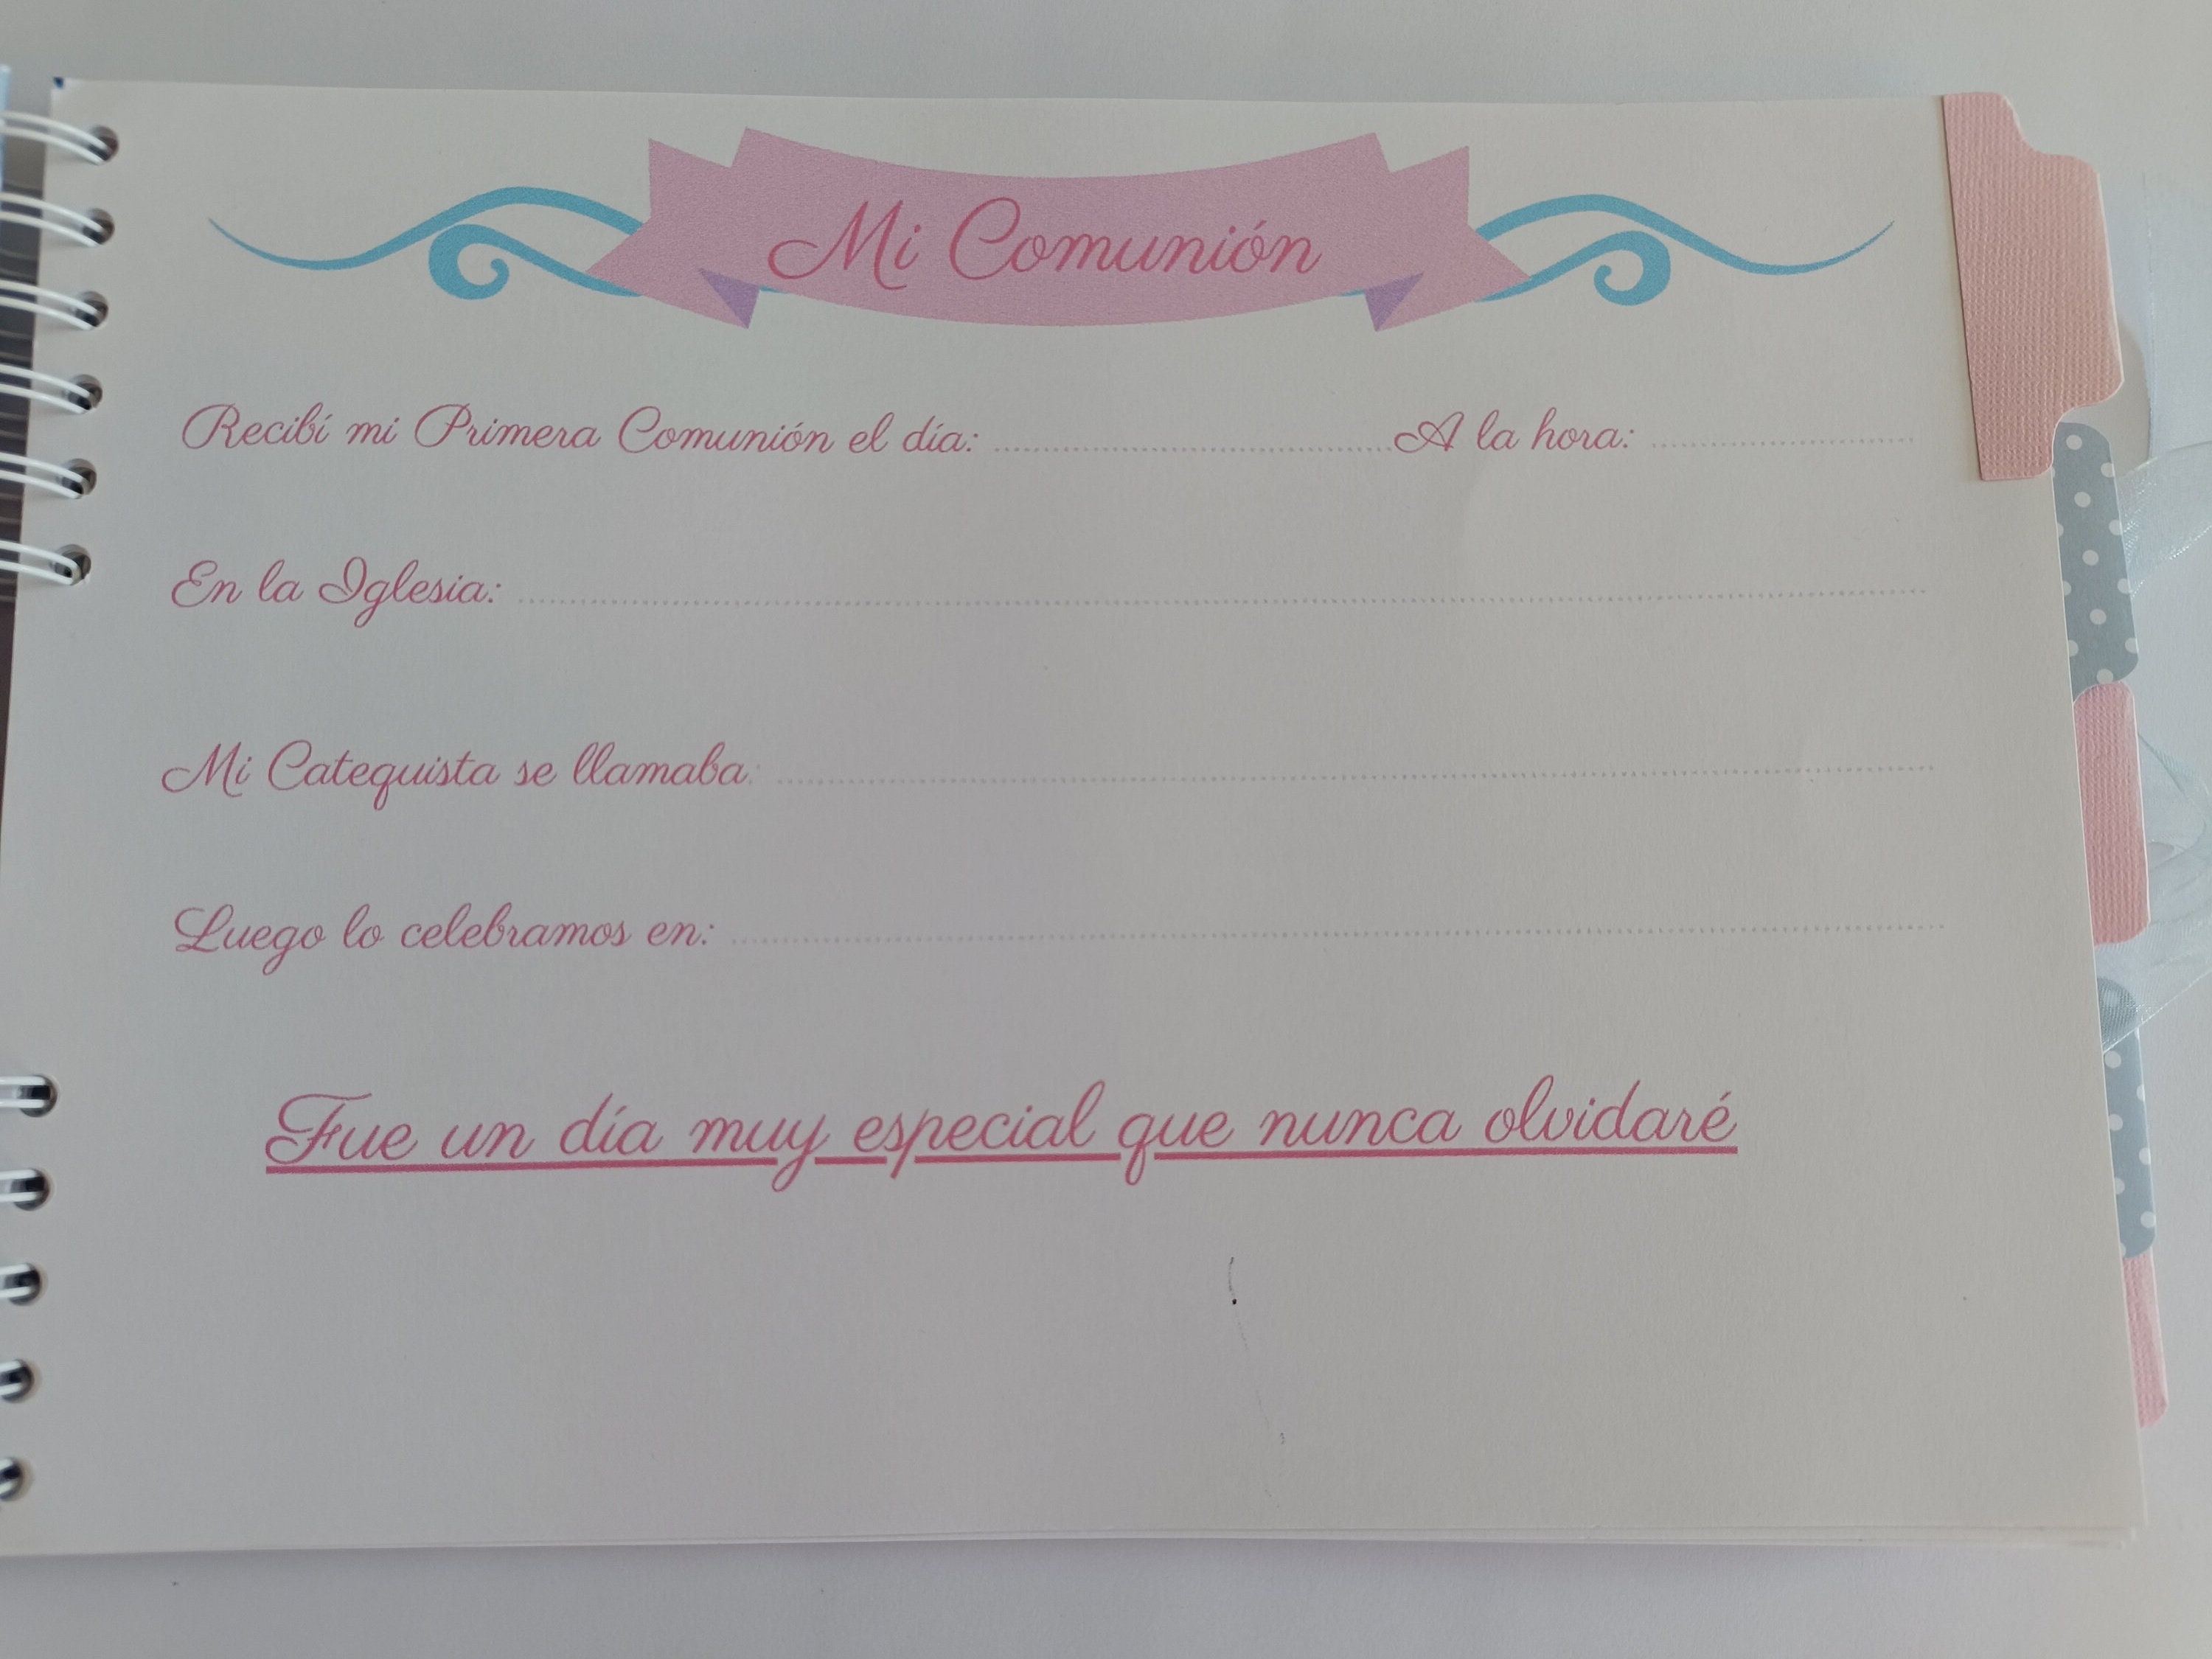 Mi Comunión
Recibí mi Primera Comunión el día: ........................................ A la hora: ............................
En la Iglesia: ................................................................................
Mi Catequista se llamaba: ................................................................................
Luego lo celebramos en: ................................................................................
Fue un día muy especial que nunca olvidaré